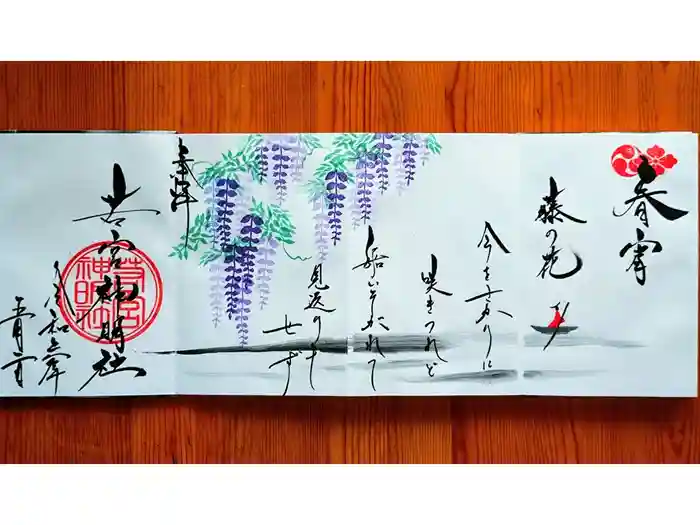 春宵
藤の花
今をさかりに
咲きつれど
船いそがれて
見返りも
せず
奉拝
若宮神明社
若宮
神明社
令和六年
五月一日